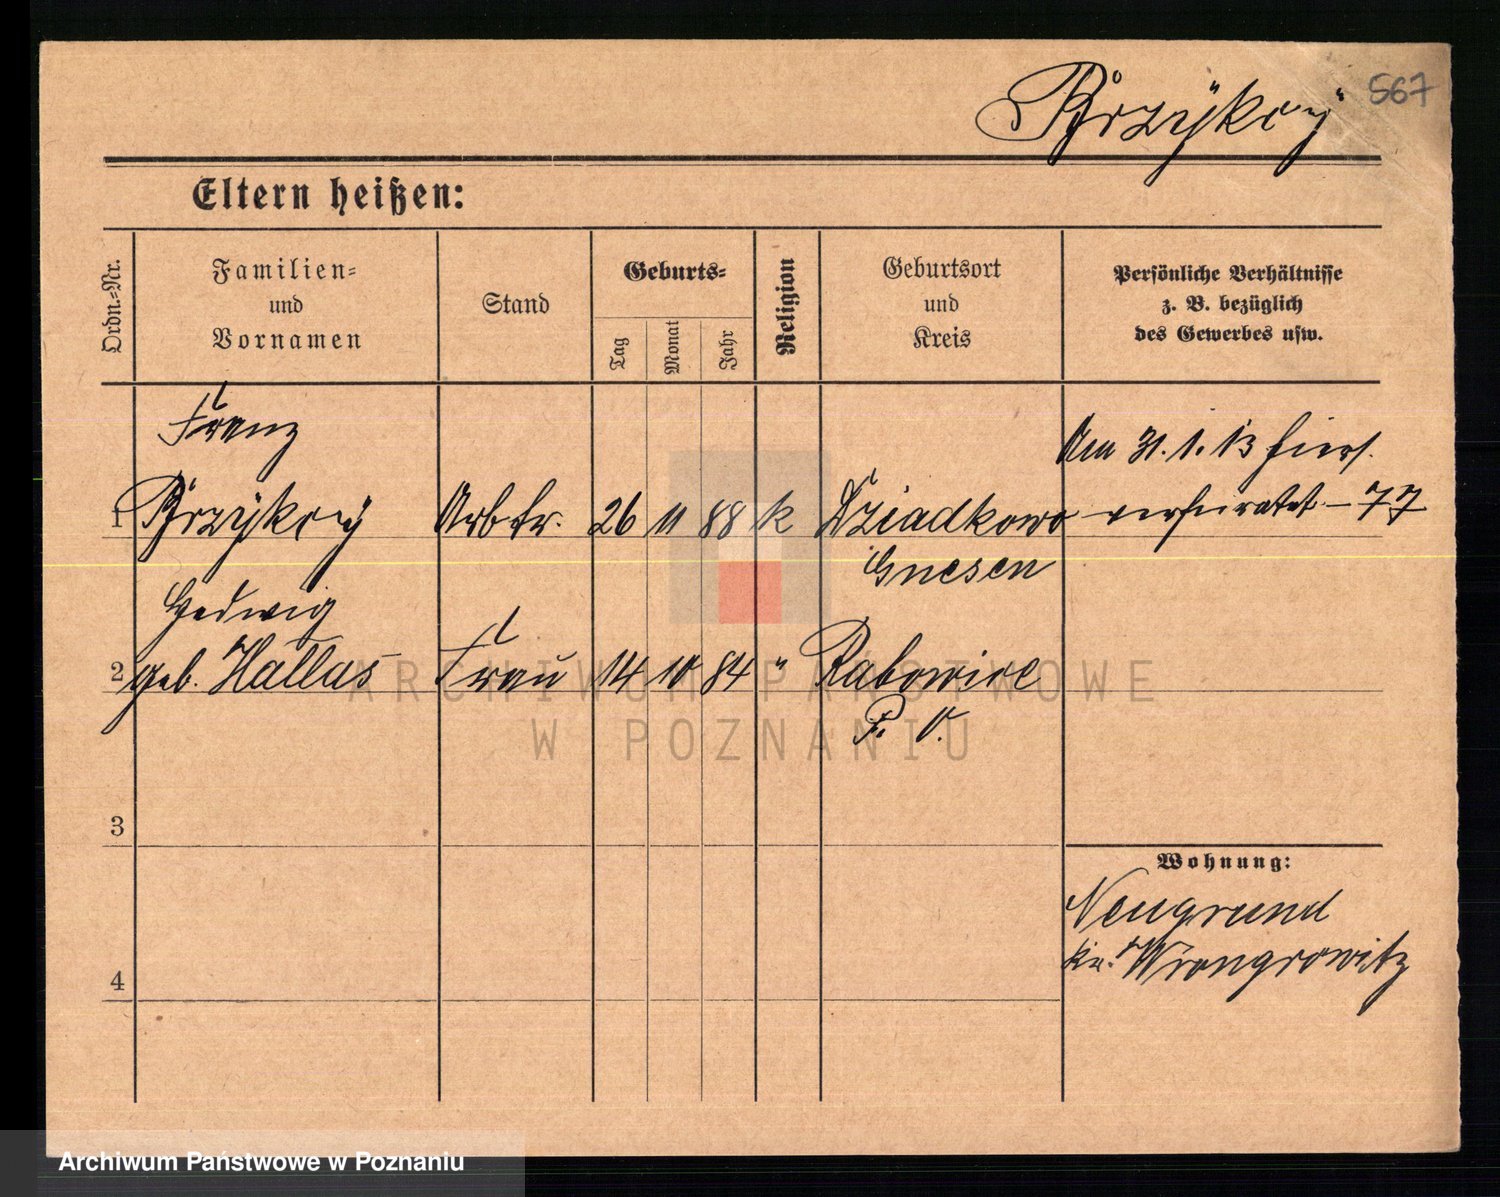 Brzykcy
567
Eltern heißen:
Ordn.-Nr.
Familien-
und
Vornamen
Stand
Geburts-
Tag
Monat
Jahr
Religion
Geburtsort
und
Kreis
Persönliche Verhältnisse
z. B. bezüglich
des Gewerbes usw.
Franz
1 Brzykcy Arbtr. 26 11 88 k Dziadkowo
Gnesen
Am 31.1.13 hier
verheiratet - 77
Hedwig
2 geb. Hallas Frau 14 10 84 " Rabowice
P. O.
3
4
Wohnung:
Neugrund
Kr. Wrongrowitz
ARCHIWUM PAŃSTWOWE
W POZNANIU
Archiwum Państwowe w Poznaniu